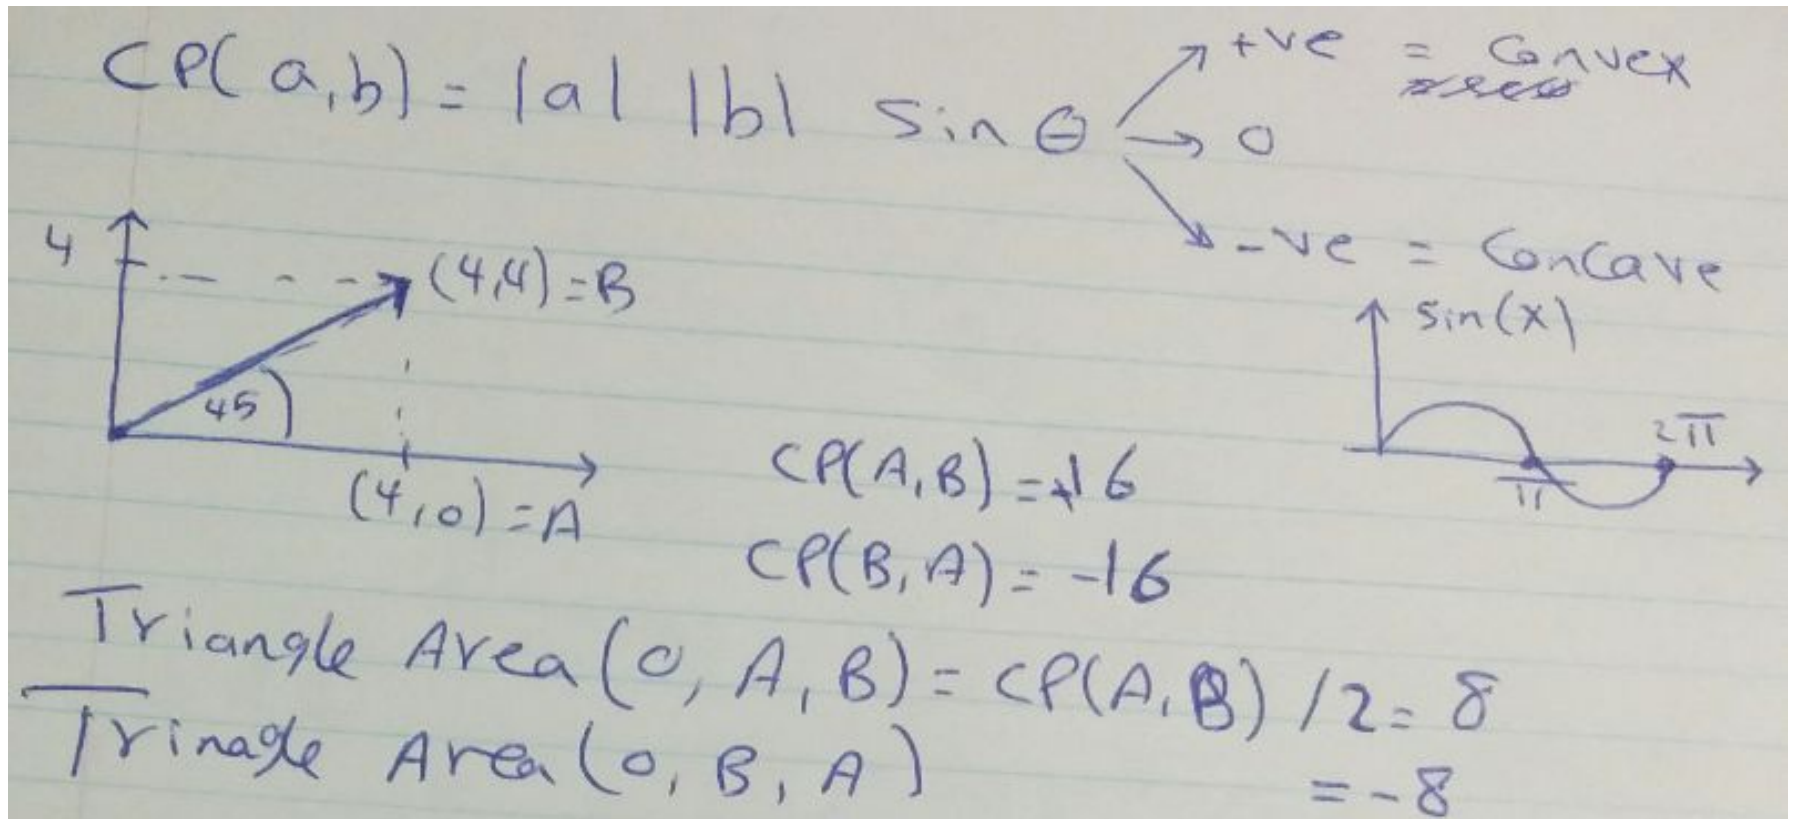 CP(a,b) = |a| |b| sin θ
+ve = Convex
0
-ve = Concave
4
(4,4) = B
45
(4,0) = A
sin(x)
π
2π
CP(A,B) = +16
CP(B,A) = -16
Triangle Area (0, A, B) = CP(A,B) /2 = 8
Trinagle Area (0, B, A) = -8